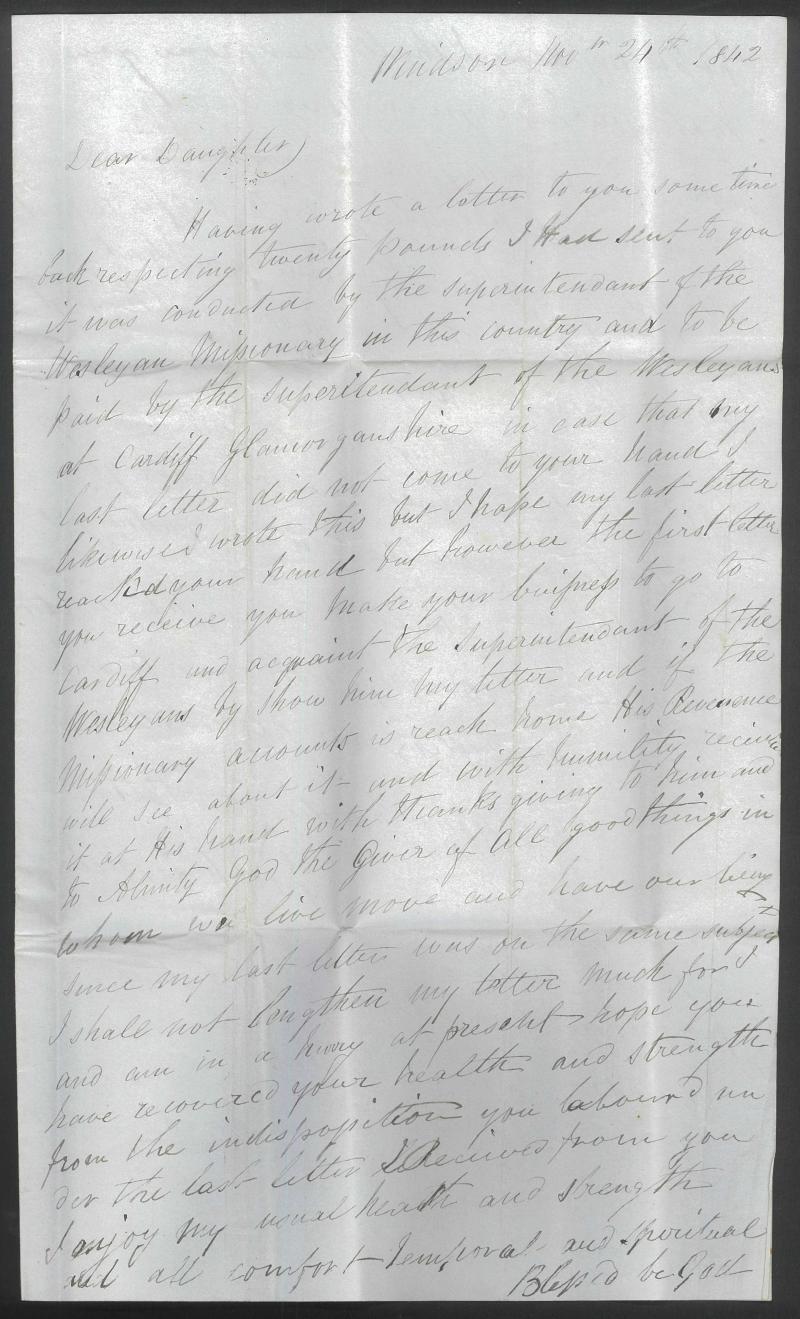 Windsor Novr 24th 1842
Dear Daughter
Having wrote a letter to you some time
back respecting twenty pounds I Had sent to you
it was conducted by the superintendant of the
Wesleyan Missionary in this country and to be
paid by the superitendant of the Wesleyans
at Cardiff Glamorganshire in case that my
last letter did not come to your hand I
likewise wrote this but I hope my last letter
reach'd your hand but however the first letter
you receive you make your buisness to go to
Cardiff and acquaint the superintendant of the
Wesleyans by show him my letter and if the
Missionary accounts is reach home His Reverence
will see about it and with humility receive
it at His hand with thanks giving to him and
to Almity God the Giver of All good things in
whom we live move and have our being
since my last letter was on the same subject
I shall not lengthen my letter much for I
and am in a hurry at present hope you
have recovered your health and strength
from the indisposition you labour'd un
der the last letter I Received from you
I anjoy my usual health and strength
and all comfort temporal and spiritual
Bless'd be God